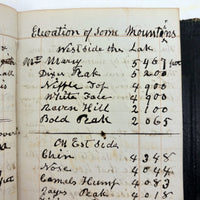 Elevation of Some Mountains
West side the Lak
Mt Marcy 5 467 feet
Dixes Peak 5 200
Nipple Top 4 900
White Face 4 900
Raven Hill 2 100
Bold Peak 2 065
On East Side
Chin 4 348
Nose 4 044
Camels Hump 4 083
Jayes Peak 4 018